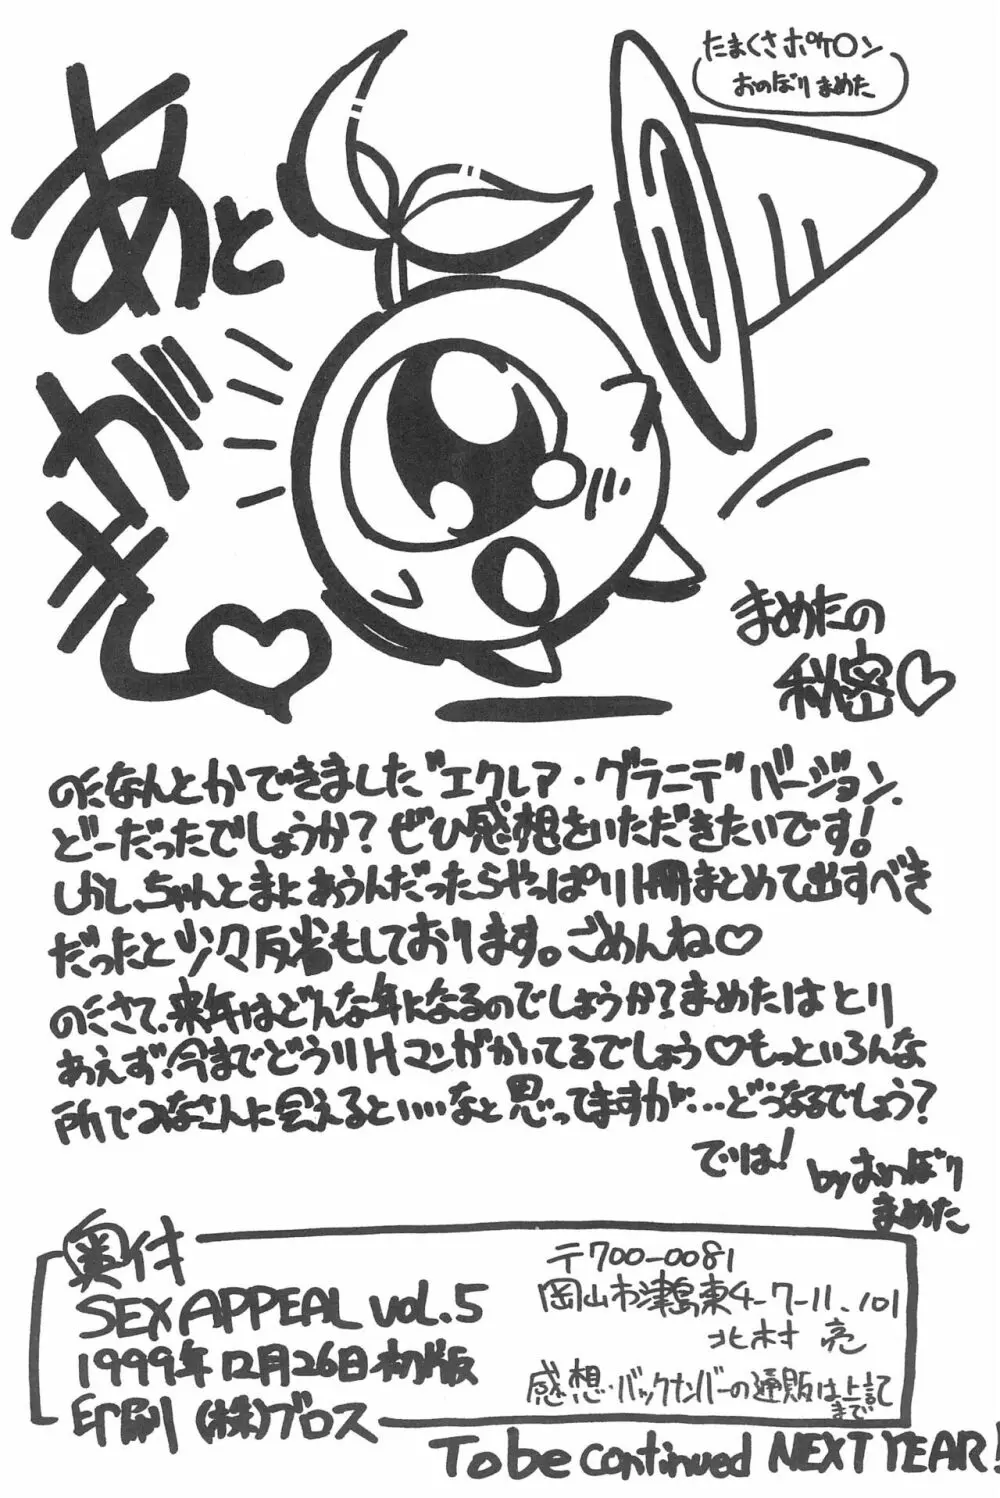 たまくさポケ○ン
おのぼりまめた
あとがき
まめたの
秘密♡
のになんとかできました"エクレア・グラニテ"バージョン、
どーだったでしょうか？ぜひ感想をいただきたいです！
しかし、ちゃんとまにあうんだったらやっぱり1冊まとめて出すべき
だったと少々反省もしております。ごめんね♡
のくさて、来年はどんな年になるのでしょうか？まめたはとり
あえず今までどうりHマンガかいてるでしょう♡もっといろんな
所でみなさんに会えるといいなと思ってますが…どうなるでしょう？
でわ！
byおのぼり
まめた
奥付
SEX APPEAL vol.5
1999年12月26日初版
印刷 (株)ブロス
〒700-0081
岡山市津島東4-7-11、101
北村 亮
感想・バックナンバーの通販は上記
まで
To be continued NEXT YEAR!